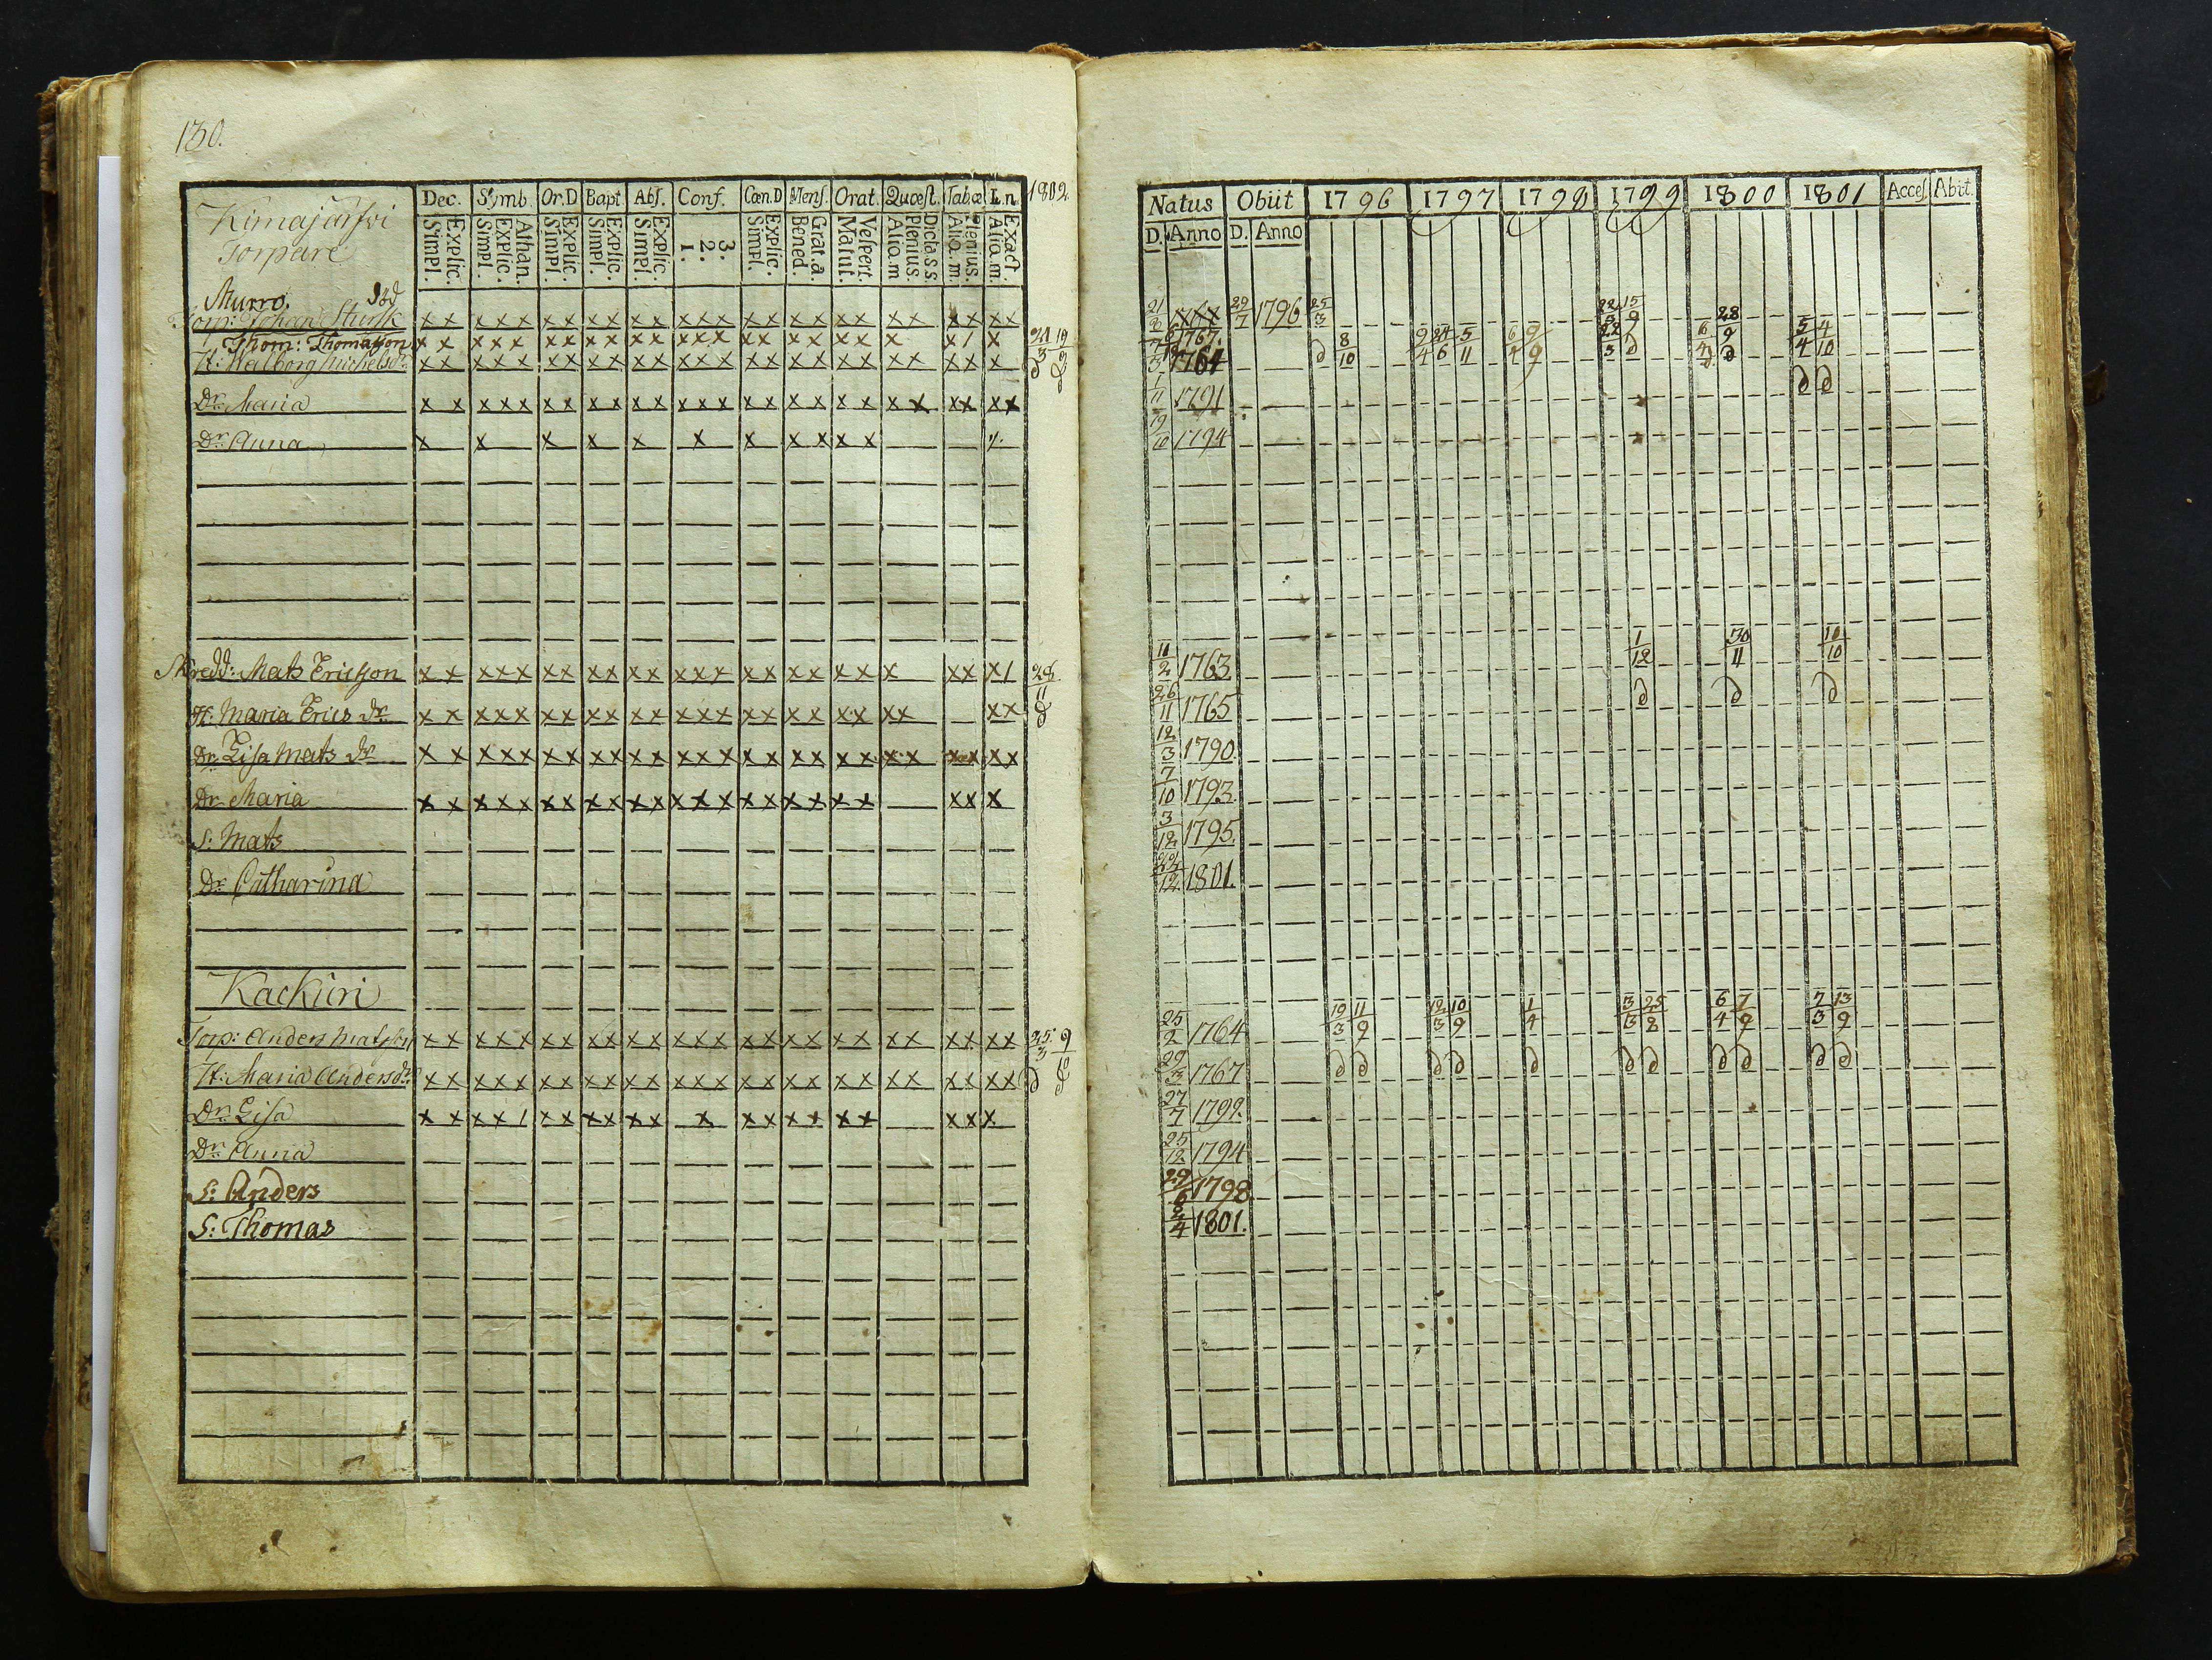 130.
Dec. Symb. Or.D Bapt. Abs. Conf. Cœn.D Mens. Orat. Quœst. Tabœ L.n. 1802
Explic. Simpl. Athan. Explic. Simpl. Explic. Simpl. Explic. Simpl. Explic. Simpl. 3. 2. 1. Explic. Simpl. Grat.a. Bened. Vespert. Matut. Dicta.s.s. Plenius. Aliq.m Plenius. Aliq.m. Exact. Aliq.m.
Kimajärfvi
Torpare
Murro. död
Torp: Johan Stursk x x x x x x x x x x x x x x x x x x x x x x x x x x x
Thom: Thomasson x x x x x x x x x x x x x x x x x x x x x x / x
H: Walborg Michelsdr x x x x x x x x x x x x x x x x x x x x x x x x x x
Dr. Maria x x x x x x x x x x x x x x x x x x x x x x x x x x
Dr. Anna x x x x x x x x x x x
Skredd: Mats Ericsson x x x x x x x x x x x x x x x x x x x x x x x x / 28/11
H: Maria Erics dr x x x x x x x x x x x x x x x x x x x x x x x x d
Dr. Lisa Mats dr x x x x x x x x x x x x x x x x x x x x x x x x x x
Dr. Maria x x x x x x x x x x x x x x x x x x x x x x x
S: Mats
Dr. Catharina
Kackuri
Torp: Anders Matsson x x x x x x x x x x x x x x x x x x x x x x x x x x
H: Maria Andersdr. x x x x x x x x x x x x x x x x x x x x x x x x x x d d
Dr. Lisa x x x x / x x x x x x x x x x x x x x x x
Dr. Anna
S: Anders
S: Thomas
Natus Obiit 1796 1797 1798 1799 1800 1801 Acces. Abit.
D. Anno D. Anno
29/7 1796 25/3 15/9
1767. 8/10 9/4 24/6 5/11 6/4 9/9 6/4 28/9 5/4 4/10
1764 d d d d
1/11 1791 d d
19/10 1794
11/2 1763 1/12 30/11 10/10
26/11 1765 d d d
12/3 1790
7/10 1793
3/12 1795.
12 1801.
25/2 1764 19/3 11/9 12/3 10/9 1/4 3/3 25/8 6/4 7/9 7/3 13/9
29/3 1767 d d d d d d d d d d d
27/7 1792.
25/12 1794
29/6 1798
2/4 1801.